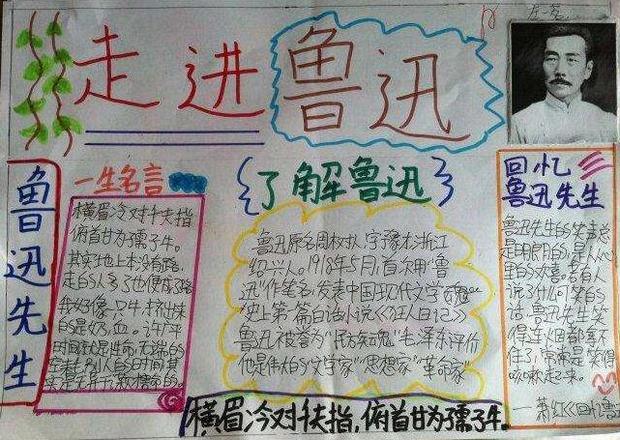 走进鲁迅
鲁迅先生
一生名言
横眉冷对千夫指
俯首甘为孺子牛。
其实地上本没有路,
走的人多了也便成了路
我好像一只牛,挤出来
的是奶,血。许广平
时间就是性命,无端的
了解鲁迅
鲁迅原名周树人,字豫才,浙江
绍兴人。1918年5月,首次用“鲁
迅”作笔名,发表中国现代文学
史上第一篇白话小说《狂人日记》
鲁迅被誉为“民族魂”毛泽东评价
他是伟大的“文学家”“思想家”“革命家”
回忆
鲁迅先生
鲁迅先生的笑声总
是明朗的,是从心
里的欢喜。若有人
说了什么可笑的
话,鲁迅先生笑
得连烟都拿不
住了,常常是笑得
咳嗽起来。
—萧红《回忆鲁迅
横眉冷对千夫指,俯首甘为孺子牛。